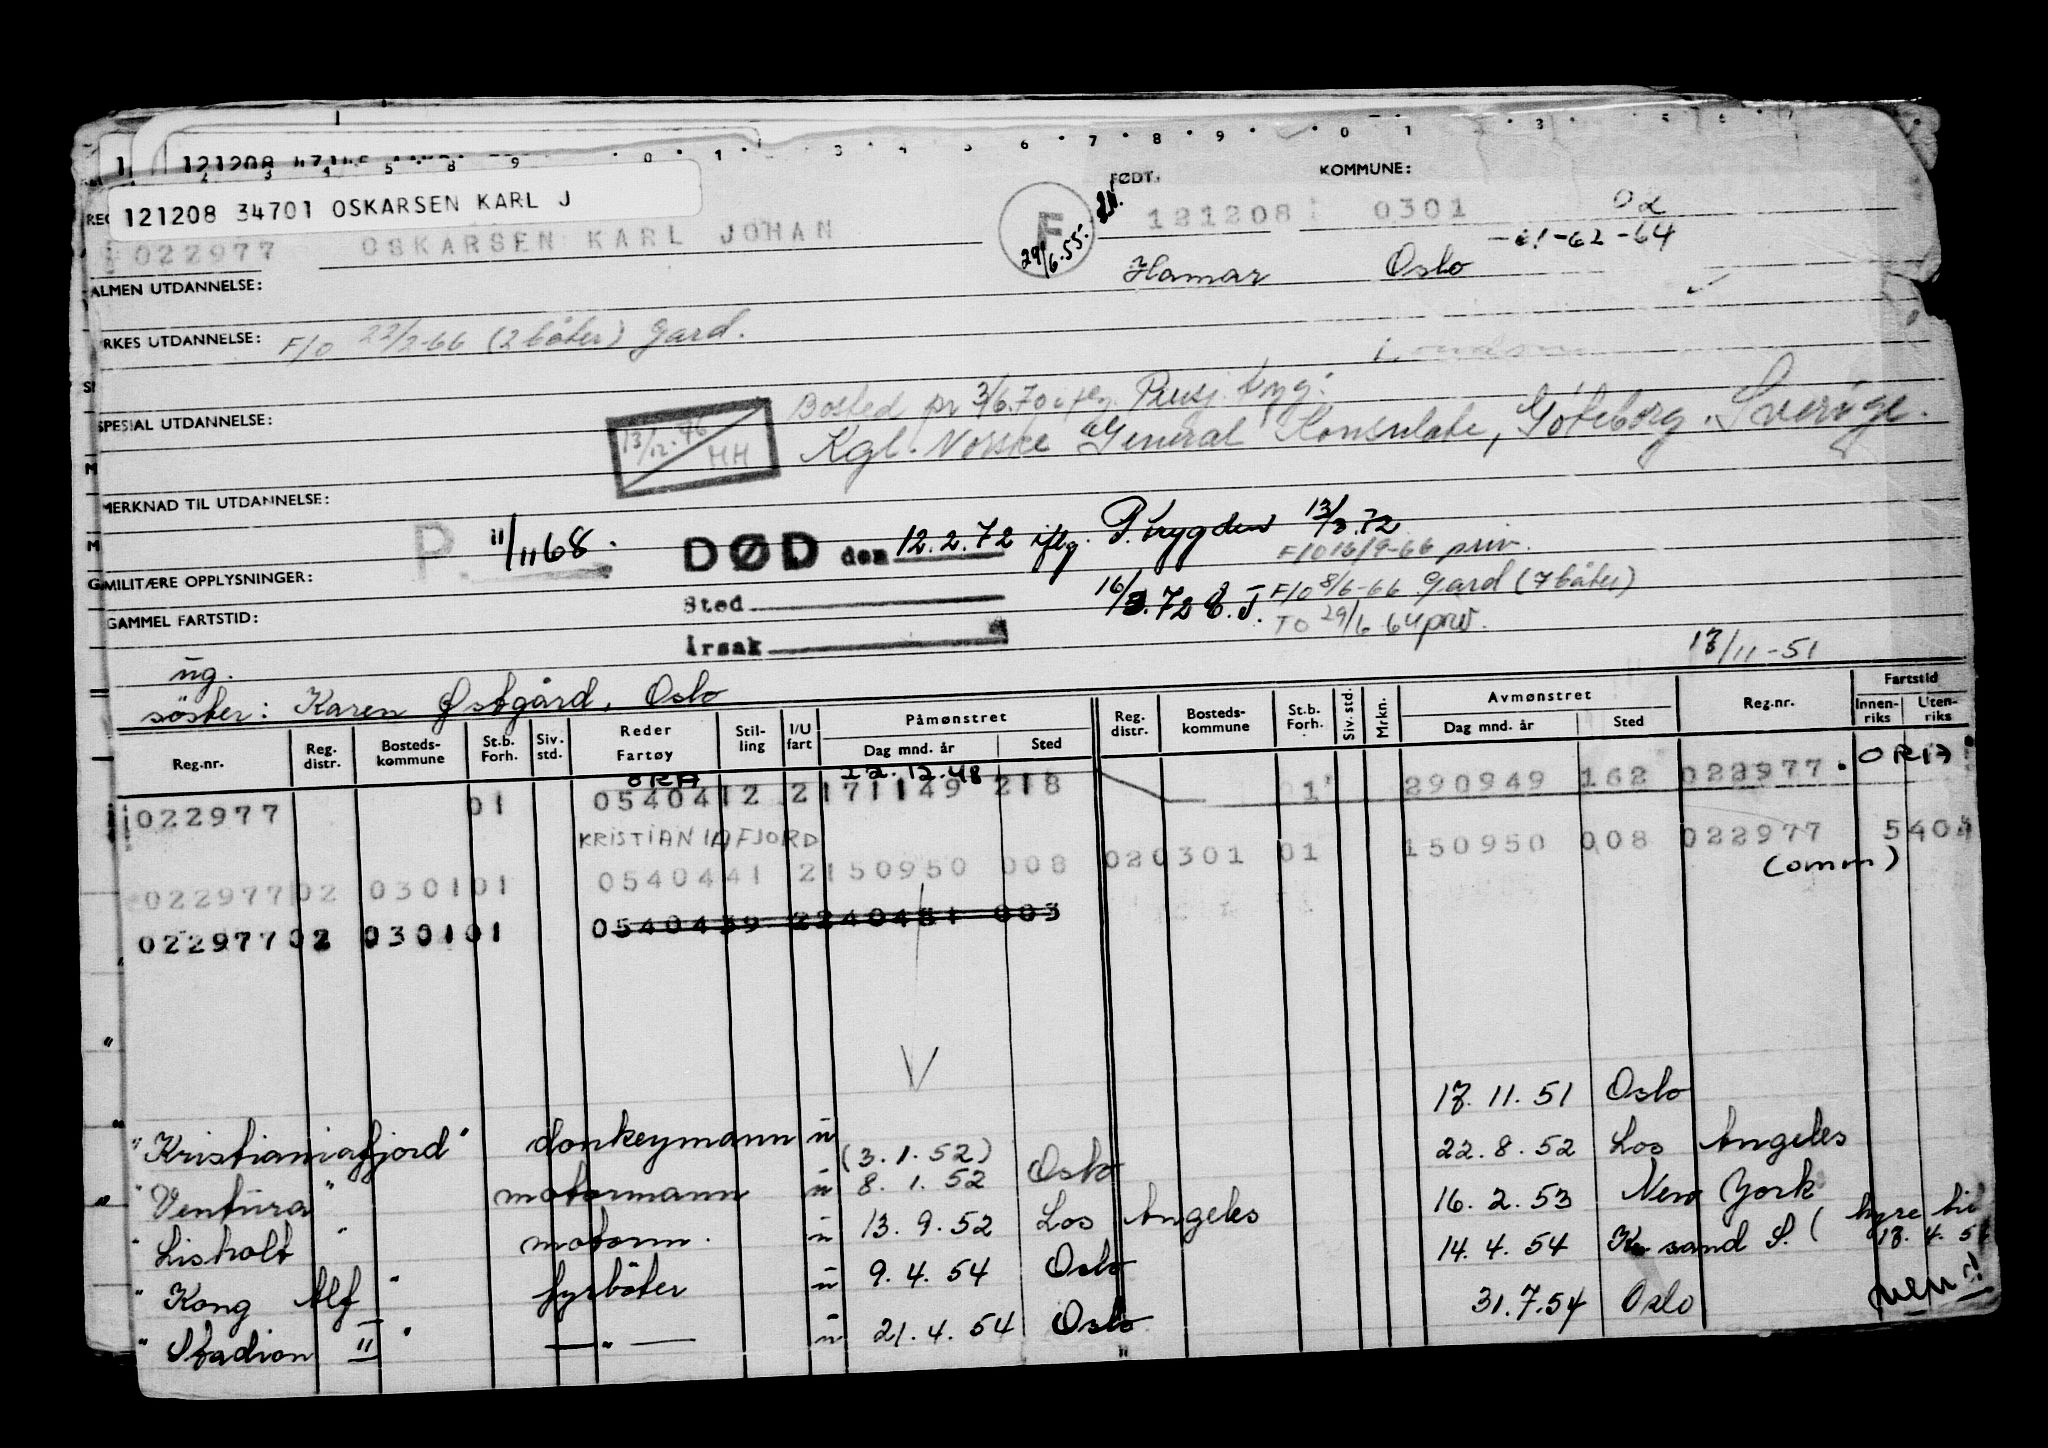 121208 34701 OSKARSEN KARL J
FØDT. KOMMUNE:
022977 OSKARSEN KARL JOHAN F 121208 0301 02
29/6.55. -61-62-64
Hamar Oslo
ALMEN UTDANNELSE:
RKES UTDANNELSE: F/O 22/2-66 (2 båter) Gard.
Bosted pr 3/6.70 iflg. Pensj. tryg:
SPESIAL UTDANNELSE: 13/12.46 HH Kgl. Norske General Konsulate, Göteborg. Sverige.
MERKNAD TIL UTDANNELSE:
P. 11/11 68. DØD den 12.2.72 iflg. P.trygden 13/3.72
F/O 16/9-66 priv.
MILITÆRE OPPLYSNINGER: Sted 16/3.72 E.J. F/O 8/6-66 Gard (7 båter)
GAMMEL FARTSTID: Årsak TO 29/6 64 priv.
ug. 13/11-51
söster: Karen Østgård, Oslo
Reg.nr. Reg. distr. Bosteds-kommune St.b. Forh. Siv. std. Reder Fartøy Stil-ling I/U fart Påmønstret Dag mnd. år Sted Reg. distr. Bosteds-kommune St.b. Forh. Siv. std. Mrkn. Avmønstret Dag mnd. år Sted Reg.nr. Fartstid Innen-riks Uten-riks
ORA 12.12.48 ORIA
022977 01 0540412 2171149 218 1 290949 162 022977
KRISTIANIAFJORD
02297702 030101 0540441 2150950 008 020301 01 150950 008 022977 5404
(omm)
02297702 030101 0540439 2240451 003
"Kristianiafjord" donkeymann u 17.11.51 Oslo
(3.1.52)
"Ventura" motormann u 8.1.52 Oslo 22.8.52 Los Angeles
"Lisholt" motorm. u 13.9.52 Los Angeles 16.2.53 New York
"Kong Alf" fyrböter u 9.4.54 Oslo 14.4.54 Kr.sand S. (hyre til 17.4.54
"Stadion II" — " — u 21.4.54 Oslo 31.7.54 Oslo